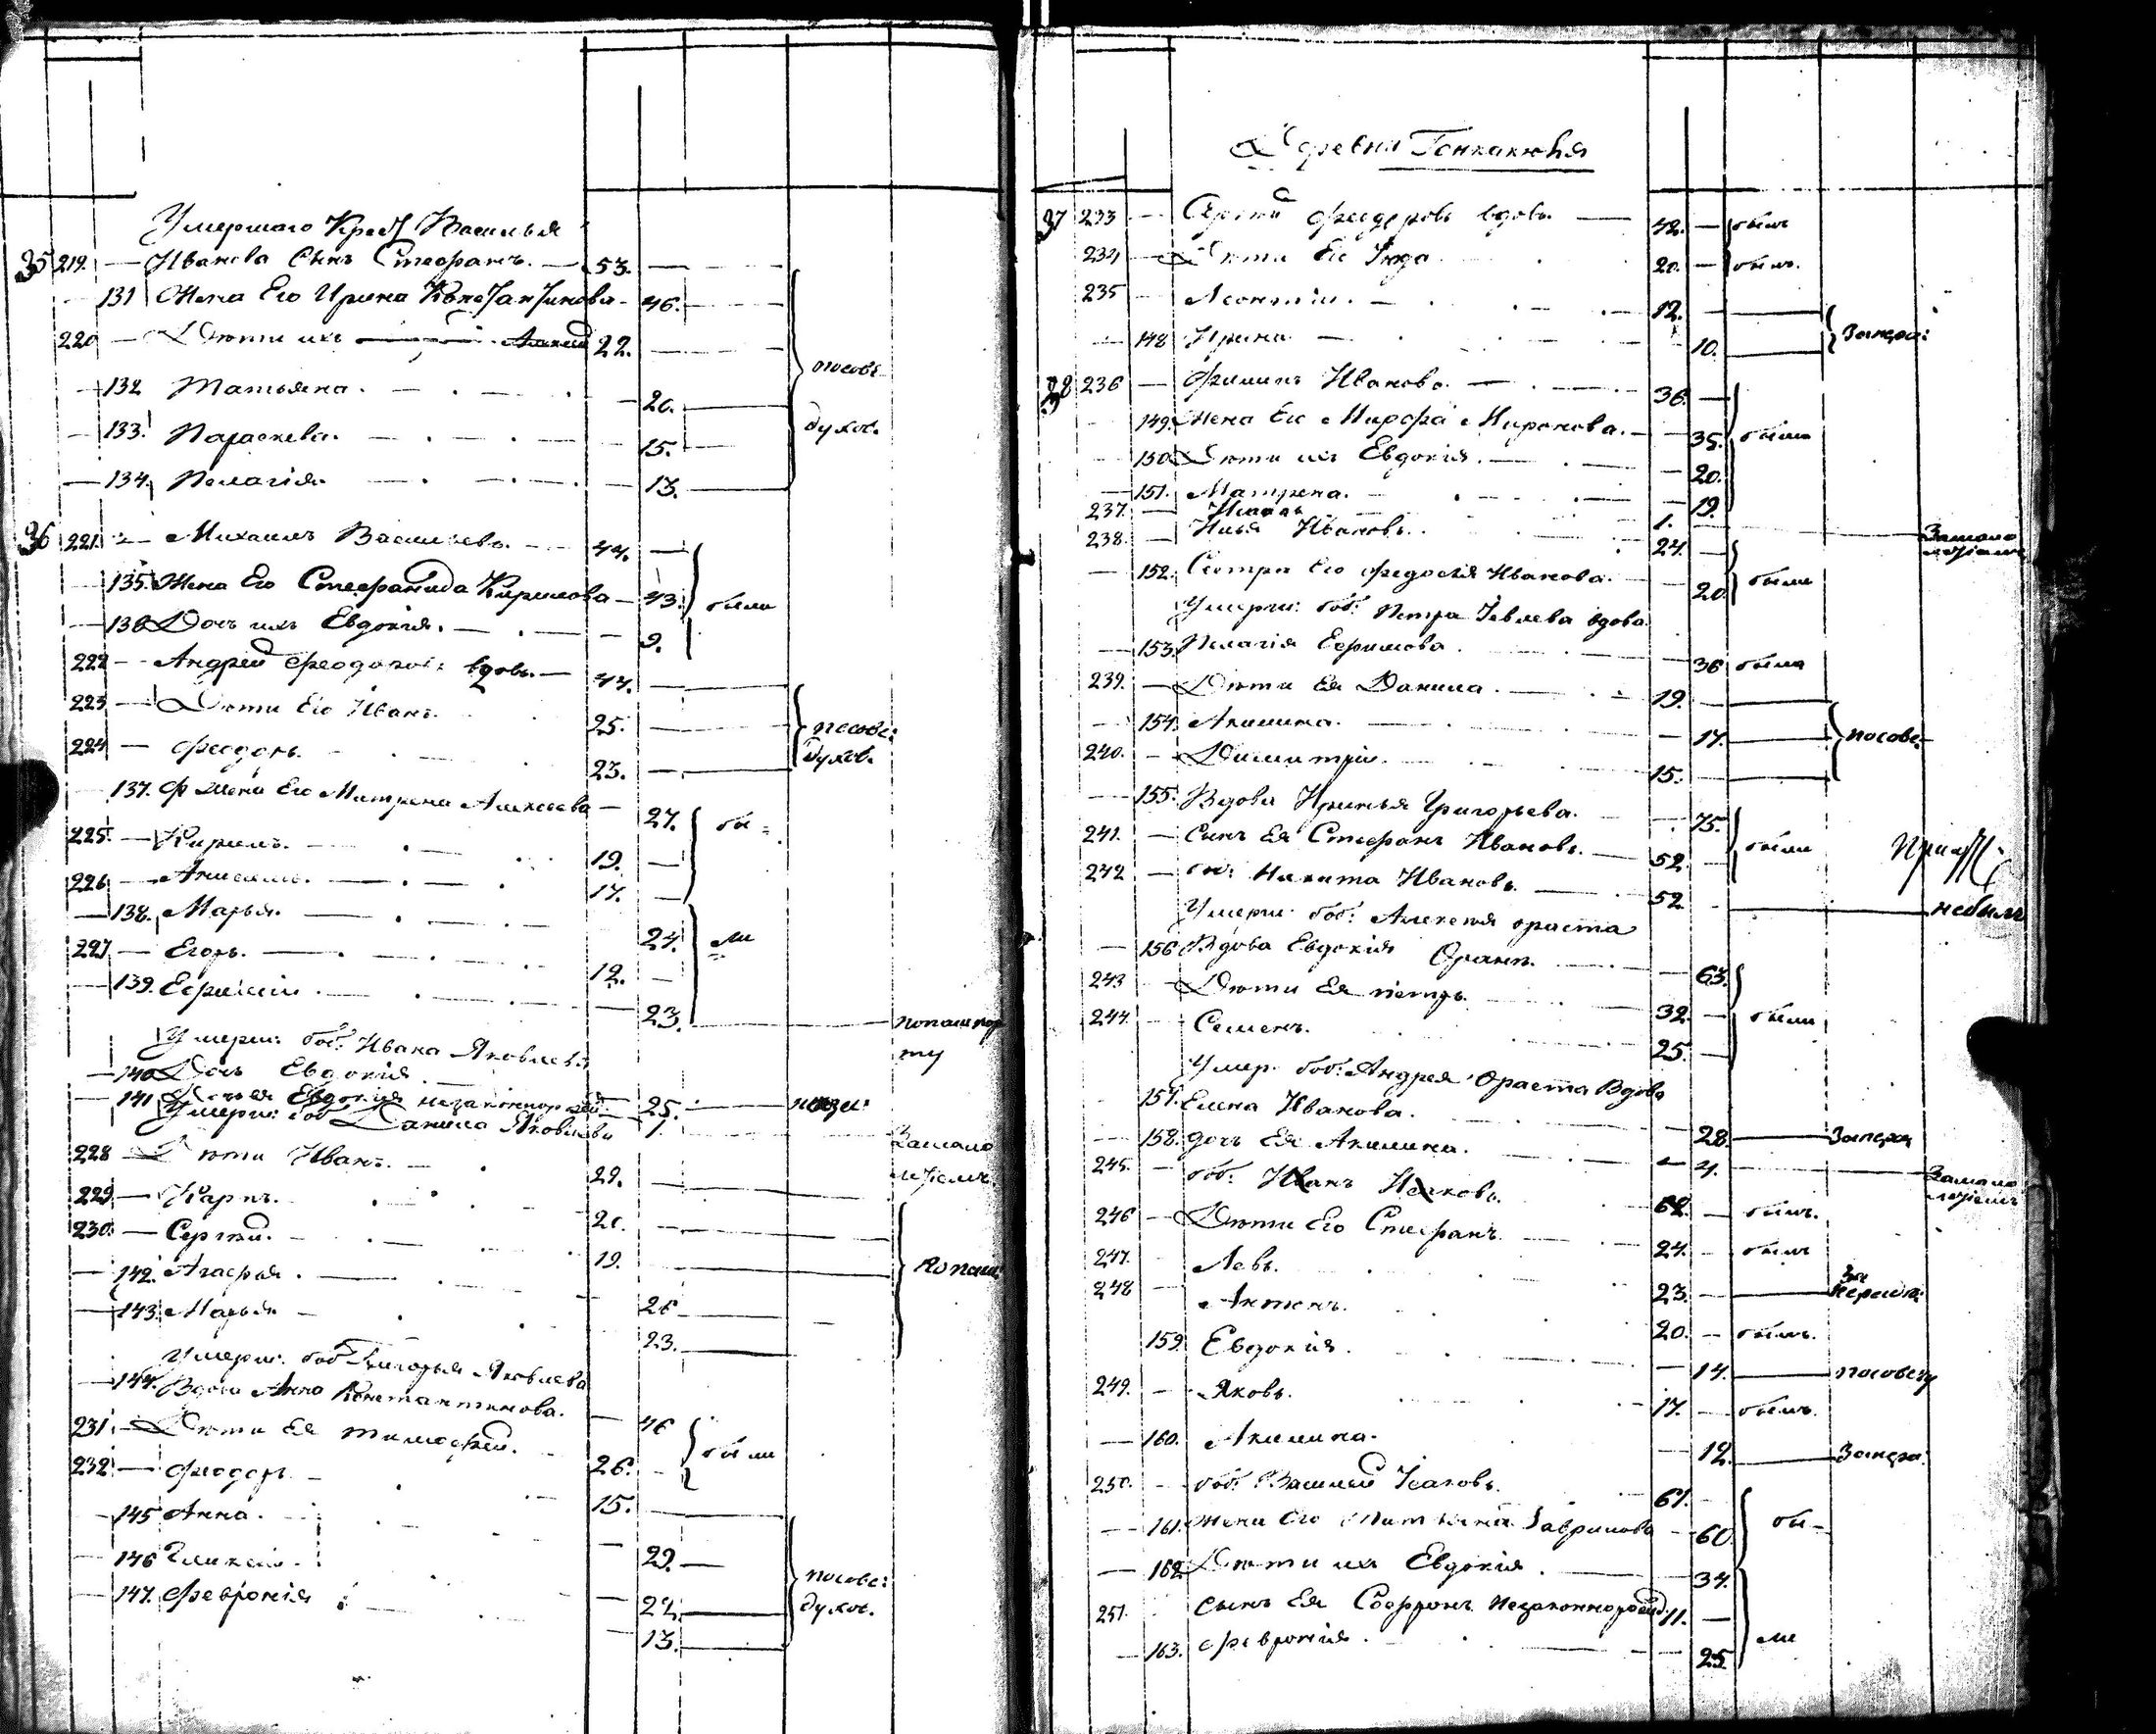 Умершаго Крест Василья
35 219. — Иванова Сынъ Стефанъ. — 53. —
131 Жена Его Ирина Константинова — 46.
220 — Дѣти ихъ Алексѣй 22.
132 Татьяна. — 20.
посовѣ
133. Параскева. — 15.
духов.
134. Пелагія. — 13.
36 221. — Михаилъ Васильевъ. — 44. —
135. Жена Его Стефанида Кирилова — 43. были
136 Дочь ихъ Евдокія. — 9.
222 — Андрей Феодоров: вдовъ. — 44. —
223 — Дѣти Его Иванъ. 25. —
посовѣ:
224 — Феодоръ. 23. —
духов.
137. Ф жена Его Матрена Алексѣева — 27.
бы=
225. — Кирилъ. — 19. —
226 — 17. —
138. Марья. — 24.
ли
227 — Егоръ. — 12. —
139. Ефимія — 23. — попашпор
ту
Умерш: боб: Ивана Яковлева
140 Дочь Евдокія 25. —
141 Евдокія незаконнорожд: 1.
Умерш: боб Данила Яковлева
Замало
лѣтіемъ
228 — Дѣти Иванъ. — 29. —
229 — Карпъ. 20. —
230. — Сергѣй. — 19. —
попаш
142. Агафья. — 26 —
143. Марья — 23. —
Умерш: боб Григорья Яковлева
144. Вдова Анна Константинова. — 46
231. — Дѣти Ея Тимофей. 26. —
были
232 — Феодоръ — 15. —
145 Анна. — 29. —
146 Гликерія. 22. —
посовѣ:
духов.
147. Февронія — 13. —
Деревня
37 233 — Сергѣй Феодоровъ вдовъ — 42. — былъ
234 — Дѣти Его Iюда 20. — былъ.
235 Леонтій. — 12. —
Запера:
148 Ирина — 10. —
38 236 — Филипъ Ивановъ. — 36. —
149. Жена Его Марфа Миронова. — 35. были
150. Дѣти ихъ Евдокія. — 20.
151. Матрена. — 19.
237. — 1. — Замало
лѣтіемъ
238. — Илья Ивановъ. 24. —
152. Сестра Его Федосія Иванова. — 20. были
Умерш: боб: Петра Iевлева вдова
153. Пелагія Ефимова — 36 была
239. — Дѣти Ея Данила. — 19. —
154. Акилина. — 17. — посовѣ:
240. — Димитрій. 15. —
155. Вдова Ирина Григорьева. 75.
241. — Сынъ Ея Стефанъ Ивановъ. — 52. — были
242 — боб: Никита Ивановъ — 52 — небылъ
Умерш. боб: Алексѣя
156 Вдова Евдокія 63.
243 — Дѣти Ея Петръ. 32. —
244. Семенъ. 25. — были
Умер. боб: Андрея Вдова
157. Елена Иванова. 28. — Запера
158. дочь Ея Акилина. — 4. — Замало
лѣтіемъ
245. боб: Иванъ Исаковъ. 62. — былъ.
246 — Дѣти Его Стефанъ. 24. — былъ
247. Левъ. 23. — За
нерадѣ:
248 Антонъ. 20. — былъ.
159. Евдокія. — 14. — посовѣту
249. — Яковъ. 17. — былъ.
160. Акилина. — 12. — Запера
250. боб: Василей Iсаковъ. 61. —
161. Жена Его Татьяна Гаврилова — 60. бы-
162 Дѣти ихъ Евдокія. — 34.
251. сынъ Ея Софронъ незаконнорожд. 11. —
ли
163. Февронія. — 25.